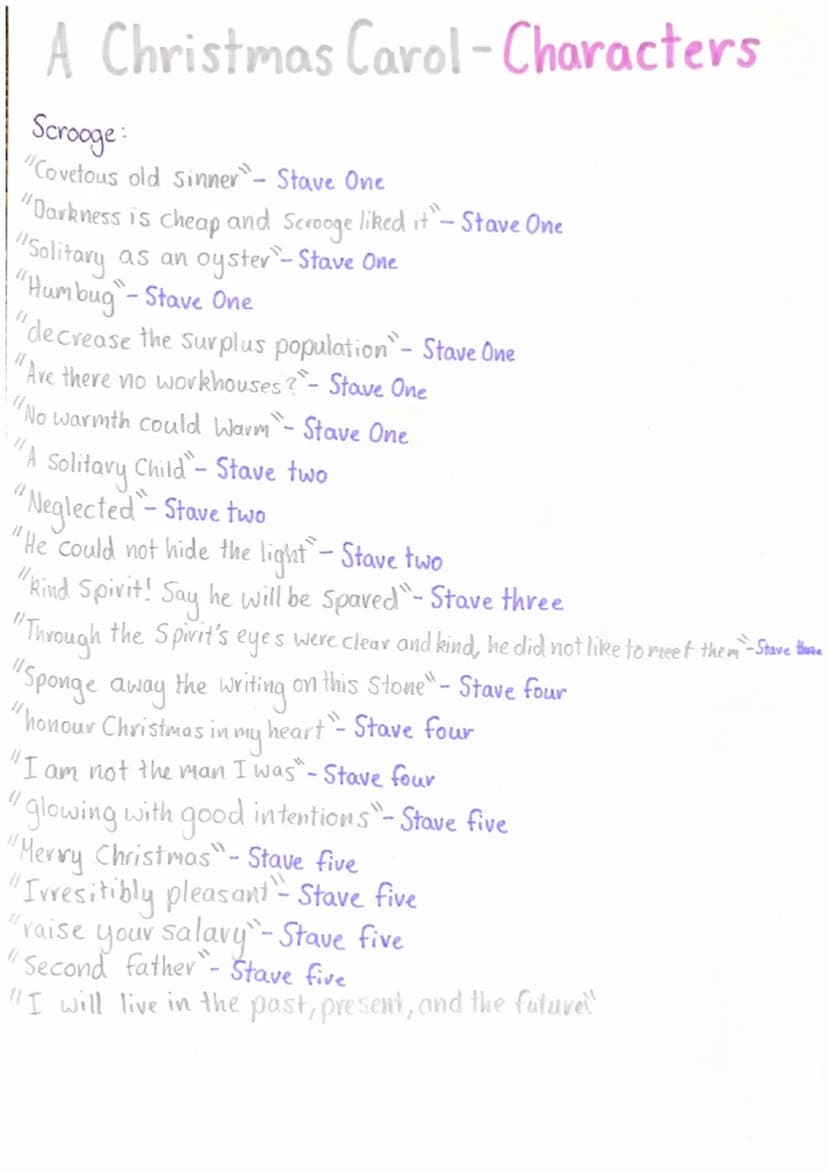 A Christmas Carol - Characters
Scrooge:
"Covetous old sinner" - Stave One
"Darkness is cheap and Scrooge liked it" - Stave One
"Solitary as an oyster" - Stave One
"Humbug" - Stave One
"decrease the surplus population" - Stave One
"Are there no workhouses?" - Stave One
"No warmth could warm" - Stave One
"A Solitary Child" - Stave two
"Neglected" - Stave two
"He could not hide the light" - Stave two
"kind Spirit! Say he will be spared" - Stave three
"Through the Spirit's eyes were clear and kind, he did not like to meet them" - Stave three
"Sponge away the writing on this Stone" - Stave four
"honour Christmas in my heart" - Stave four
"I am not the man I was" - Stave four
"glowing with good intentions" - Stave five
"Merry Christmas" - Stave five
"Irresitibly pleasant" - Stave five
"raise your salary" - Stave five
"Second father" - Stave five
"I will live in the past, present, and the future."